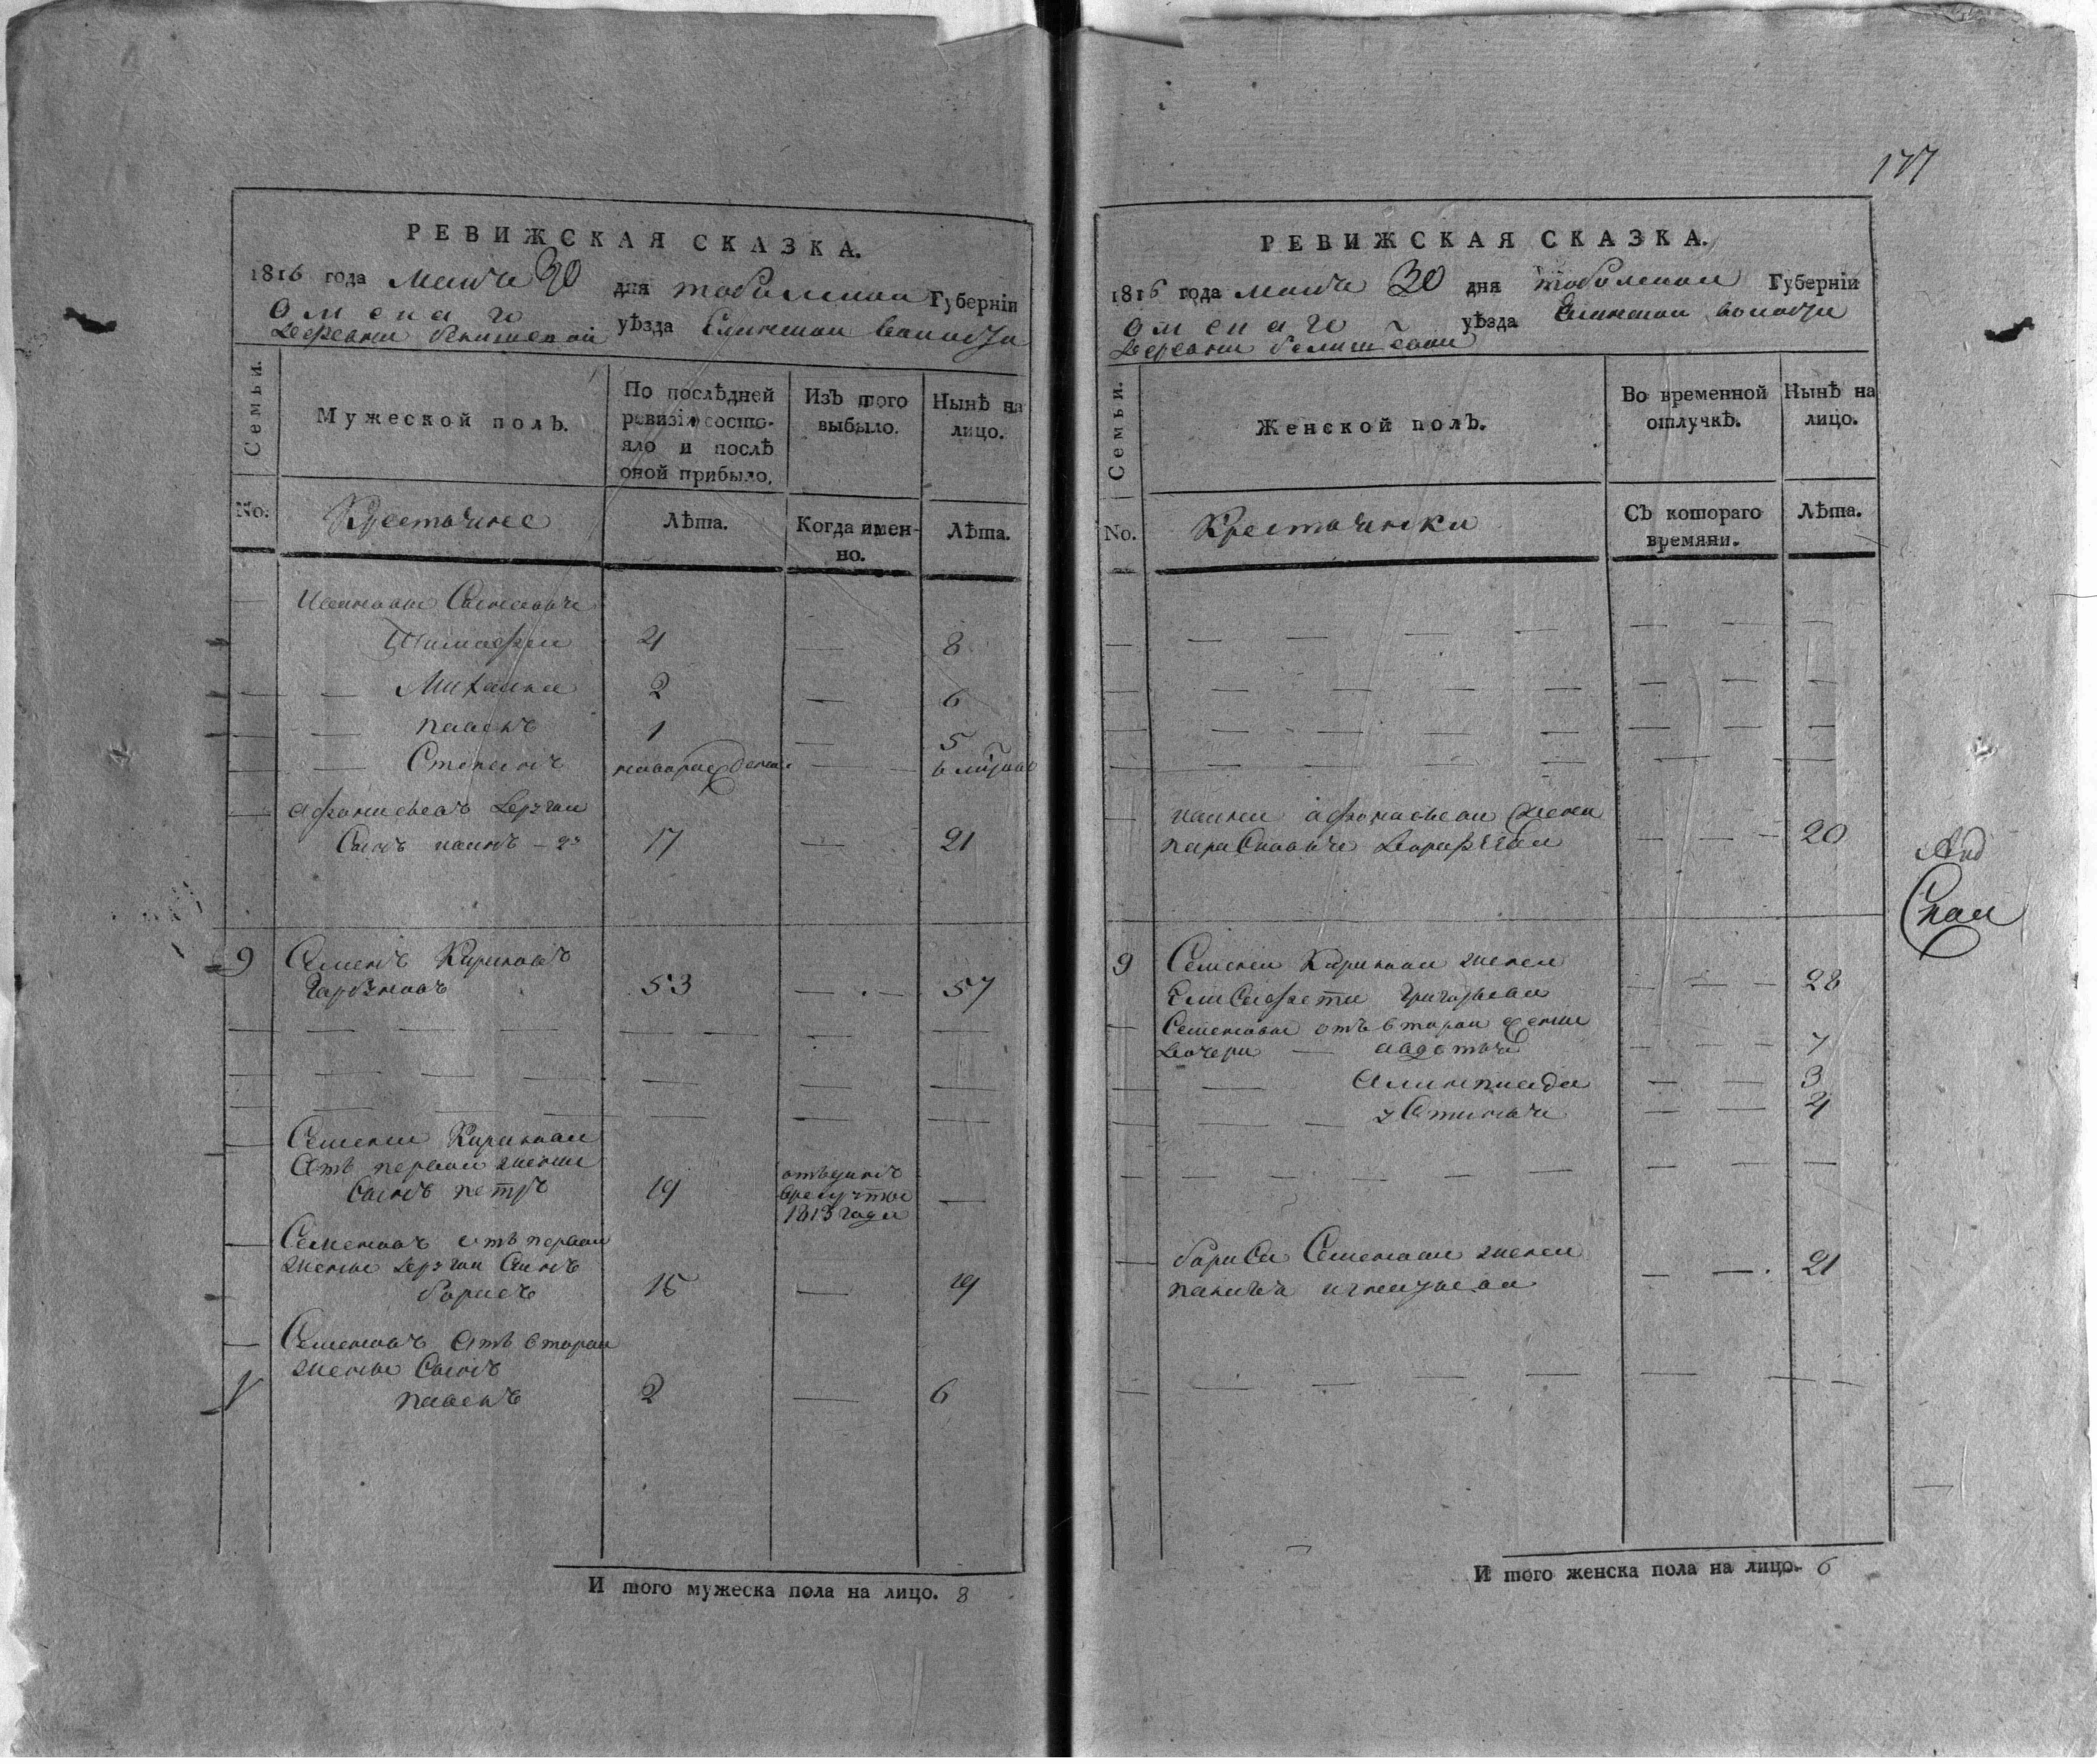 РЕВИЖСКАЯ СКАЗКА.
1816 года маия 30 дня тобольской Губерніи
Омскаго уѣзда Еланской волости
деревни
Семьи.
Мужеской полъ.
По послѣдней ревизіи состо-
яло и послѣ
оной прибыло.
Изъ того
выбыло.
Нынѣ на
лицо.
No.
Крестьяне
Лѣта.
Когда имен-
но.
Лѣта.
Ивановы Сыновья
Тимофеи 4 — 8
— — Михаила 2 — 6
— — павелъ 1 — 5
— — Степанъ новорожденъ —
— Афонасьевъ другои
Сынъ иванъ – 2й 17 — 21
9 Семенъ Кириловъ
53 — . — 57
— Семена Кирилова
Отъ первои жены
Сынъ петръ 19 отъданъ
в рекруты
1813 года —
— Семеновъ отъ первои
жены другои Сынъ
борисъ 15 — 19
— Семеновъ Отъ второи
жены Сынъ
павелъ 2 — 6
И того мужеска пола на лицо. 8
177
РЕВИЖСКАЯ СКАЗКА.
1816 года маия 30 дня тобольской Губерніи
Омскаго уѣзда Еланской волости
деревни
Семьи.
Женской полъ.
Во временной
отлучкѣ.
Нынѣ на
лицо.
No.
Крестьянки
Съ котораго
времяни.
Лѣта.
— ивана афонасьева жена
парасковья дорофѣева — — — 20
9 Семена Кирилова жена
Елисафета григорьева — — — 28
— Семеновы отъ второи жены
дочери — авдотья — — — 7
— — Олимпиада — — 3
устинья — — 4
— бориса Семенова жена
игнатьева — — . 21
И того женска пола на лицо. 6